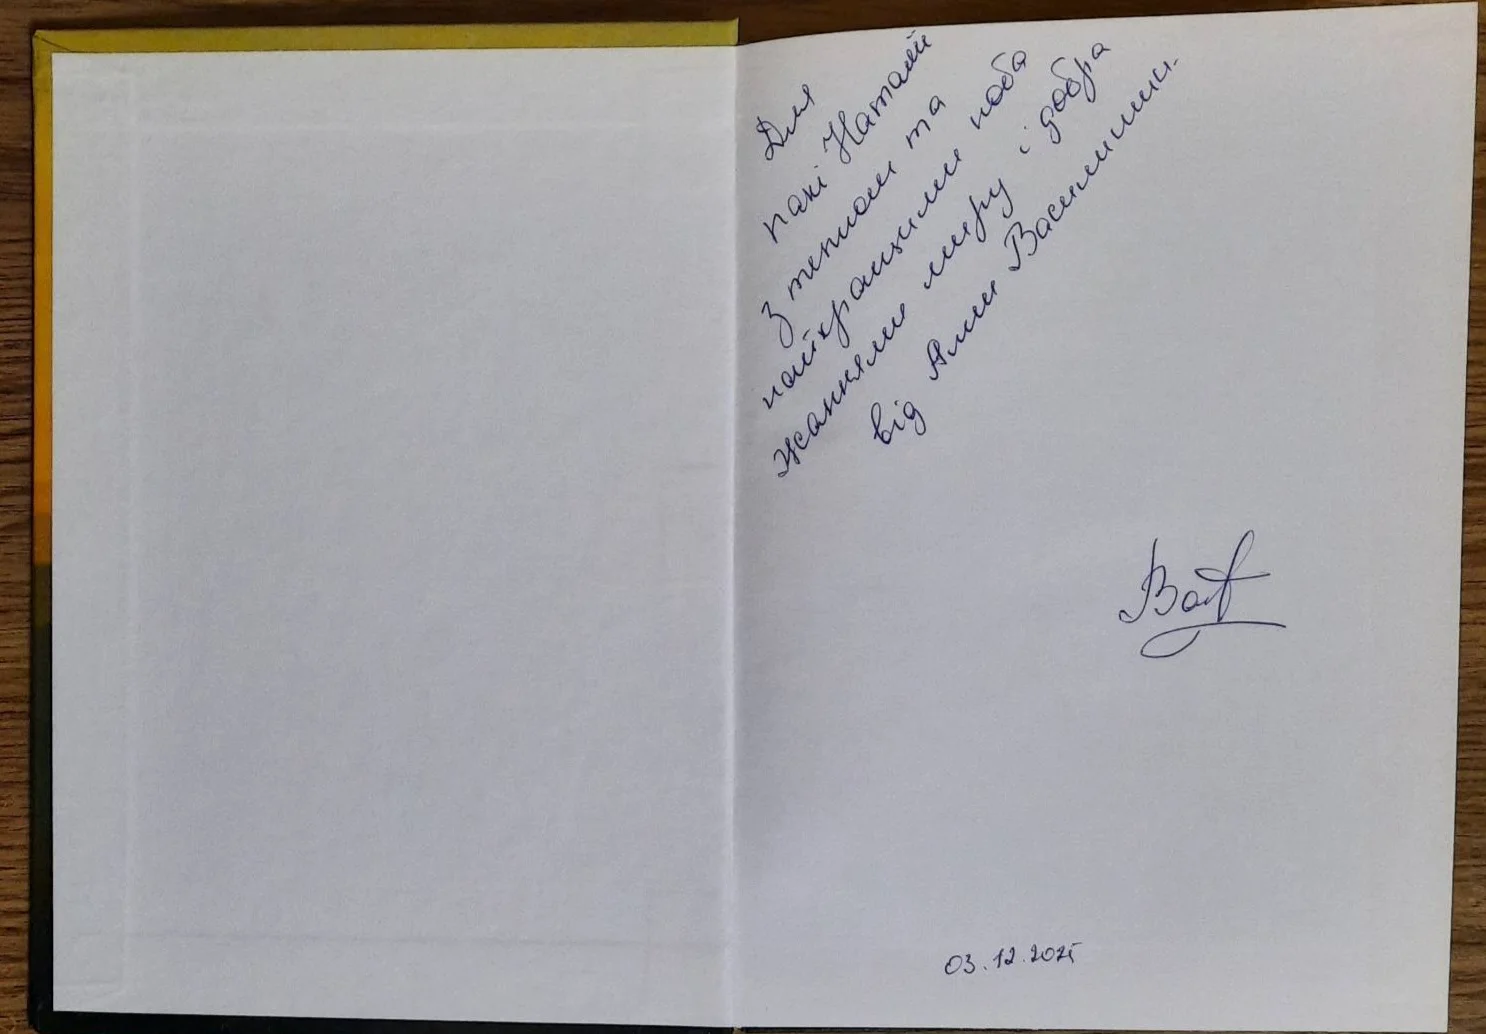 Для
пані Наталії
з теплом та
найкращими поба
жаннями миру і добра
від Алли Василишин.
03.12.2025